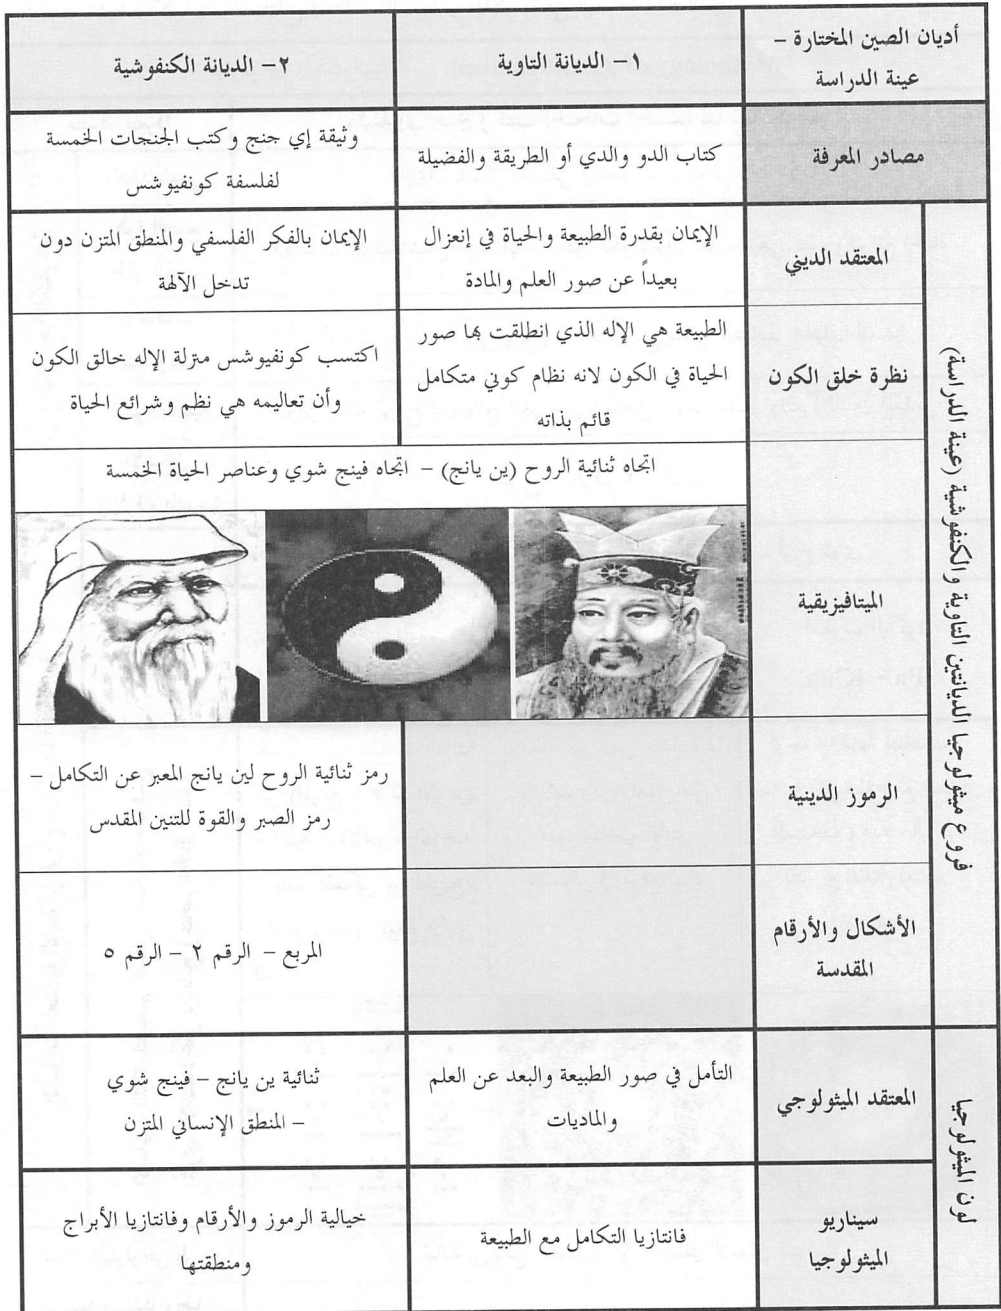 أديان الصين المختارة –
عينة الدراسة
١- الديانة التاوية
٢- الديانة الكنفوشية
مصادر المعرفة
كتاب الدو والدي أو الطريقة والفضيلة
وثيقة إي جنج وكتب الجنجات الخمسة
لفلسفة كونفيوشس
فروع ميثولوجيا الديانتين التاوية والكنفوشية (عينة الدراسة)
المعتقد الديني
الإيمان بقدرة الطبيعة والحياة في إنعزال
بعيداً عن صور العلم والمادة
الإيمان بالفكر الفلسفي والمنطق المتزن دون
تدخل الآلهة
نظرة خلق الكون
الطبيعة هي الإله الذي انطلقت بها صور
الحياة في الكون لانه نظام كوني متكامل
قائم بذاته
اكتسب كونفيوشس منزلة الإله خالق الكون
وأن تعاليمه هي نظم وشرائع الحياة
الميتافيزيقية
اتجاه ثنائية الروح (ين يانج) – اتجاه فينج شوي وعناصر الحياة الخمسة
الرموز الدينية
رمز ثنائية الروح لين يانج المعبر عن التكامل –
رمز الصبر والقوة للتنين المقدس
الأشكال والأرقام
المقدسة
المربع – الرقم ٢ – الرقم ٥
لون الميثولوجيا
المعتقد الميثولوجي
التأمل في صور الطبيعة والبعد عن العلم
والماديات
ثنائية ين يانج – فينج شوي
– المنطق الإنساني المتزن
سيناريو
الميثولوجيا
فانتازيا التكامل مع الطبيعة
خيالية الرموز والأرقام وفانتازيا الأبراج
ومنطقتها